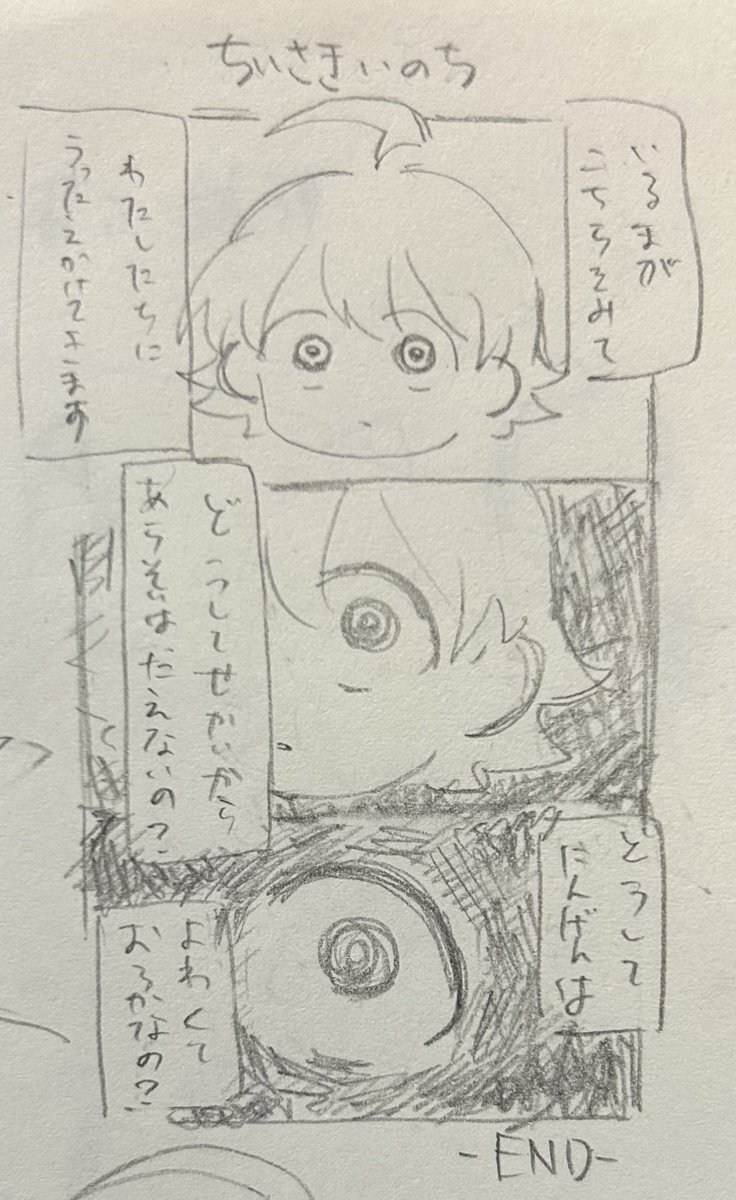 ちいさきいのち
いるまが
こちらをみて
わたしたちに
うったえかけてきます
どうしてせかいから
あらそいは、たえないの？
どうして
にんげんは
よわくて
おろかなの？
-END-